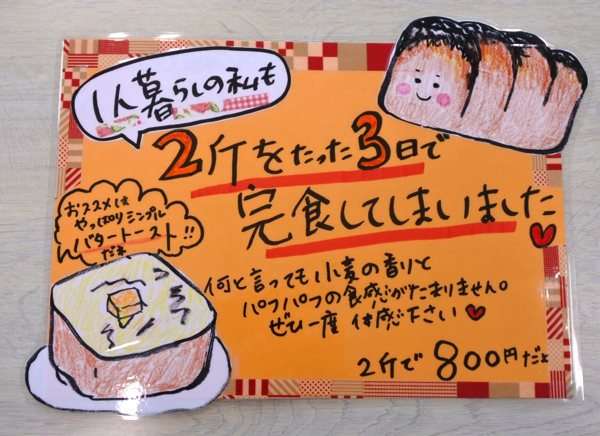 1人暮らしの私も
2斤をたった3日で
完食してしまいました
おススメは
やっぱりシンプル
バタートースト!!
だね
何と言っても小麦の香りと
パフパフの食感がたまりません。
ぜひ一度 体感下さい
2斤で 800円だよ